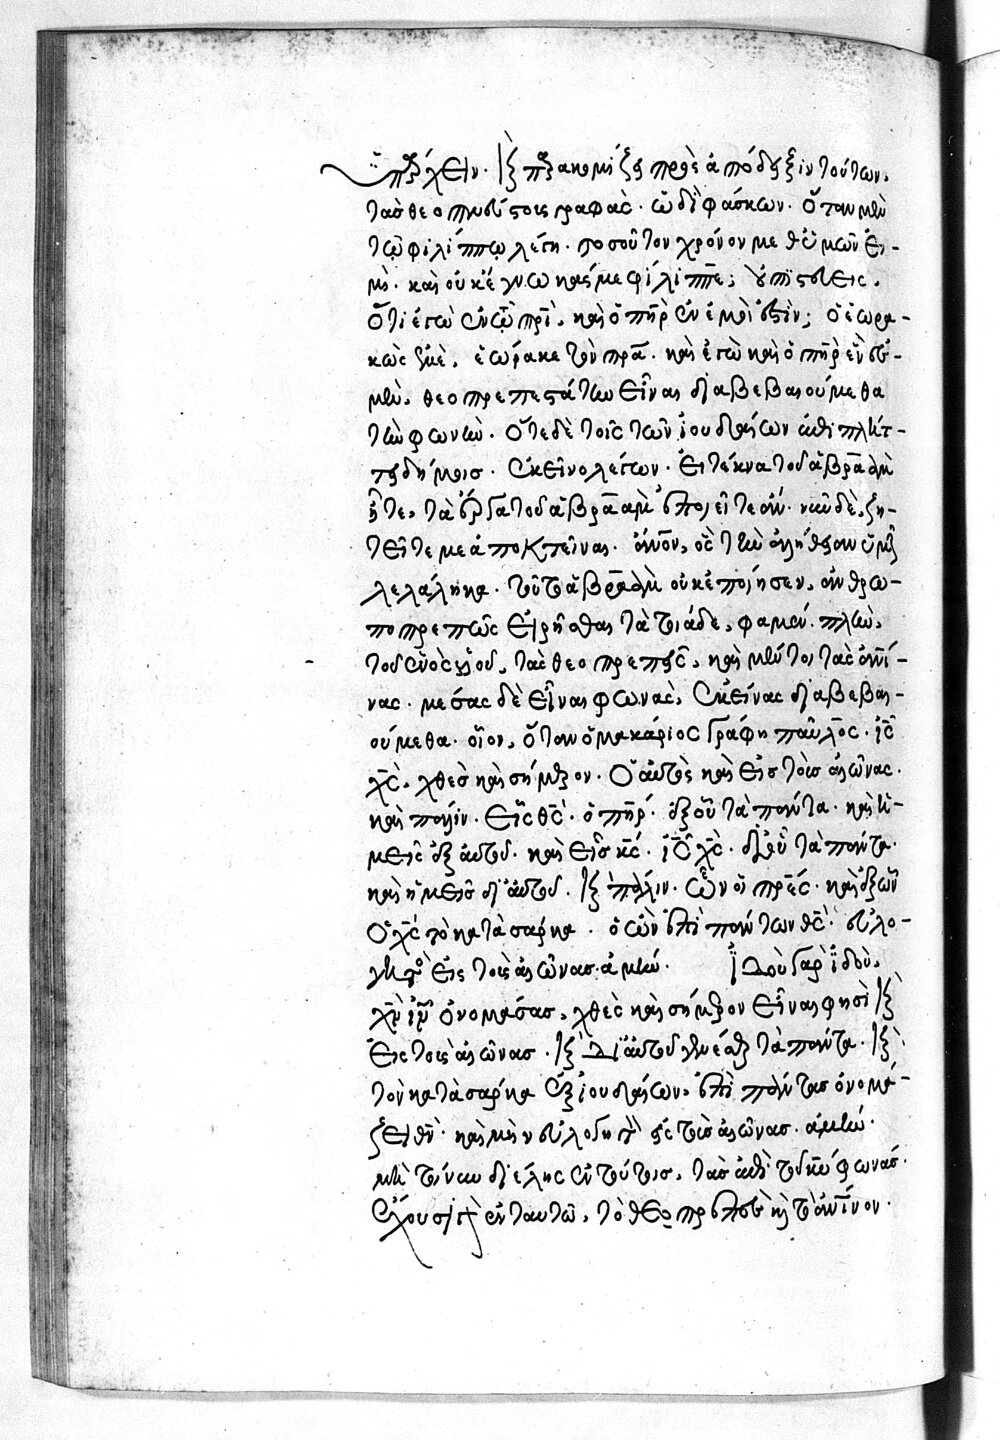 ὑπάρχειν. καὶ παρακομίζει πρὸς ἀπόδειξιν τούτων,
τὰσ θεοπνεύστοις γραφὰς. ὧδὶ φάσκων. ὅταν μὲν
τῷ φιλίππῳ λέγη. τοσοῦτον χρόνον μεθ' ὑμῶν εἰ-
μὶ. καὶ οὐκ ἔγνωκάς με φίλιππε; οὐ πιστεύεις.
ὅτι ἐγὼ ἐν τῷ πρὶ, καὶ ὁ πηρ ἐν ἐμοί ἐστὶν; ὁ ἑωρα-
κὼς ἐμὲ, ἑώρακε τὸν πρα. καὶ ἐγὼ καὶ ὁ πηρ ἕν ἐσ-
μὲν. θεοπρεπεστάτην εἶναι διαβεβαιούμεθα
τὴν φωνὴν. ὅτε δὲ τοῖς τῶν ἰουδαίων ἐπιπλήτ-
τει δήμοισ. ἐκεῖνο λέγων. εἰ τέκνα τοῦ ἀβραὰμ
ἦτε, τὰ ἔργα τοῦ ἀβραὰμ ἐποιεῖτε ἄν. νῦν δὲ, ζη-
τεῖτέ με ἀποκτεῖναι. ἄνον, ὃς τὴν ἀλήθειαν ὑμῖν
λελάληκα. τοῦτο ἀβραὰμ οὐκ ἐποίησεν, ἀνθρω-
ποπρεπῶς εἰρῆσθαι τὰ τοιάδε, φαμὲν. πλὴν,
τοῦ ἑνὸς υἱοῦ, τάς θεοπρεπεῖς, καὶ μέντοι τὰς ἀνί-
νας. μέσας δὲ εἶναι φωνὰς, ἐκείνας διαβεβαι-
ούμεθα. οἷον, ὅταν ὁ μακάριος γράφη παῦλος. ἰς
χς, χθὲσ καὶ σήμερον. ὁ αὐτὸς καὶ εἰσ τοὺσ αἰῶνας.
καὶ πάλιν. εἷς θς. ὁ πηρ. ἐξ οὗ τὰ πάντα. καὶ ἡ-
μεῖς ἐξ αὐτοῦ. καὶ εἷσ κς. ἰς χς. δι' οὗ τὰ πάντα.
καὶ ἡμεῖσ δι' αὐτοῦ. καὶ πάλιν. ὧν οἱ πρες. καὶ ἐξ ὧν
ὁ χς τὸ κατὰ σάρκα. ὁ ὢν ἐπὶ πάντων θς. εὐλο-
γητὸς εἰς τοὺς αἰῶνασ. ἀμήν. ἰδοὺ γὰρ ἰδοὺ,
χν ἰν ὀνομάσασ, χθὲς καὶ σήμερον εἶναι φησὶ καὶ
εἰς τοὺς αἰῶνασ. καὶ δι' αὐτοῦ γενέσθαι τὰ πάντα. καὶ
τὸν κατὰ σάρκα ἐξ ἰουδαίων, ἐπὶ πάντασ ὀνομά-
ζει θν. καὶ μὴν εὐλογητὸν εἰς τοὺσ αἰῶνασ. ἀμὴν.
μὴ τοίνυν διέλης ἐν τούτοισ, τὰσ ἐπὶ τοῦ κυ φωνάσ.
ἔχουσι γὰρ ἐν ταυτῶ, τὸ θεοπρεπὲσ καὶ τὸ ἀνίνον.